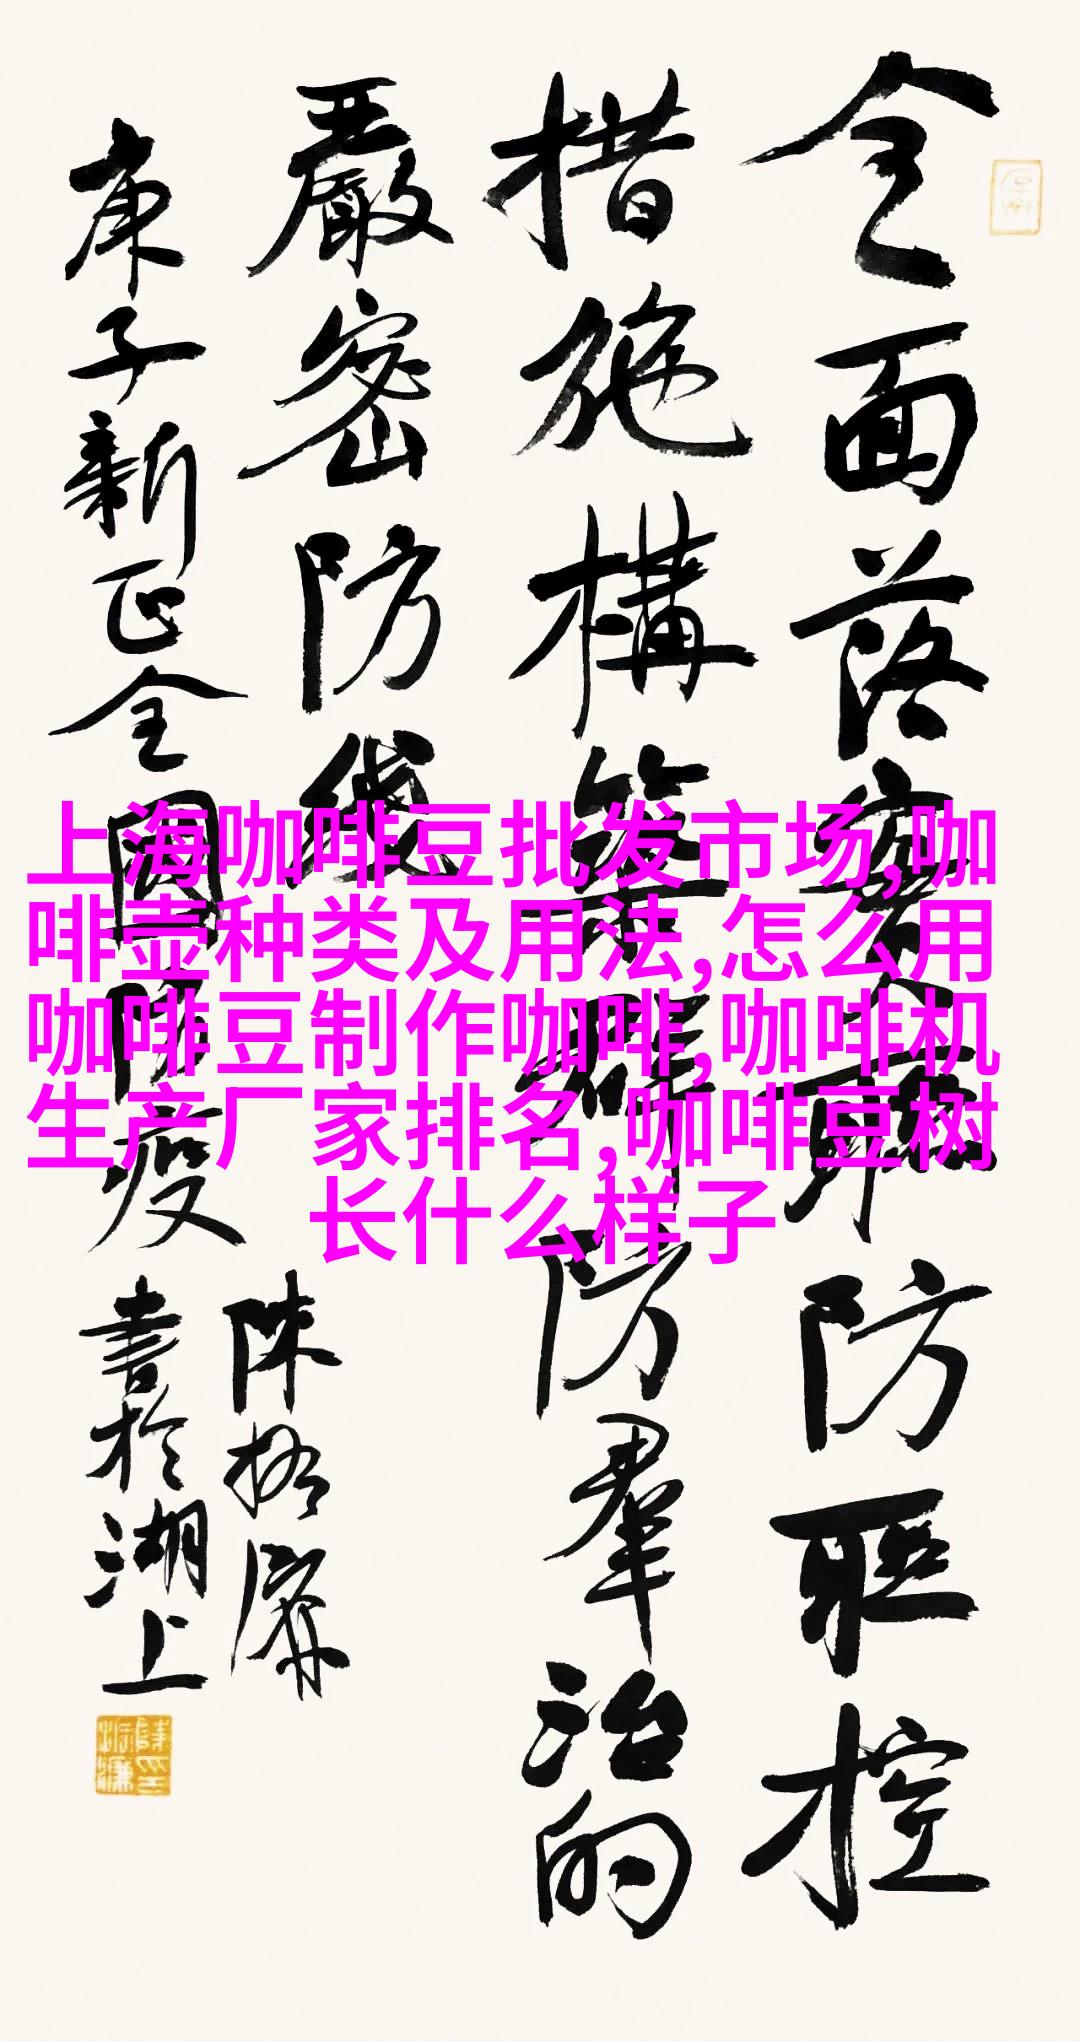 全面落實聯防聯控
措施構築群防羣治的
嚴密防線
庚子新正全國防疫
陳振濂
書於湖上
上海咖啡豆批发市场,咖
啡壶种类及用法,怎么用
咖啡豆制作咖啡,咖啡机
生产厂家排名,咖啡豆树
长什么样子